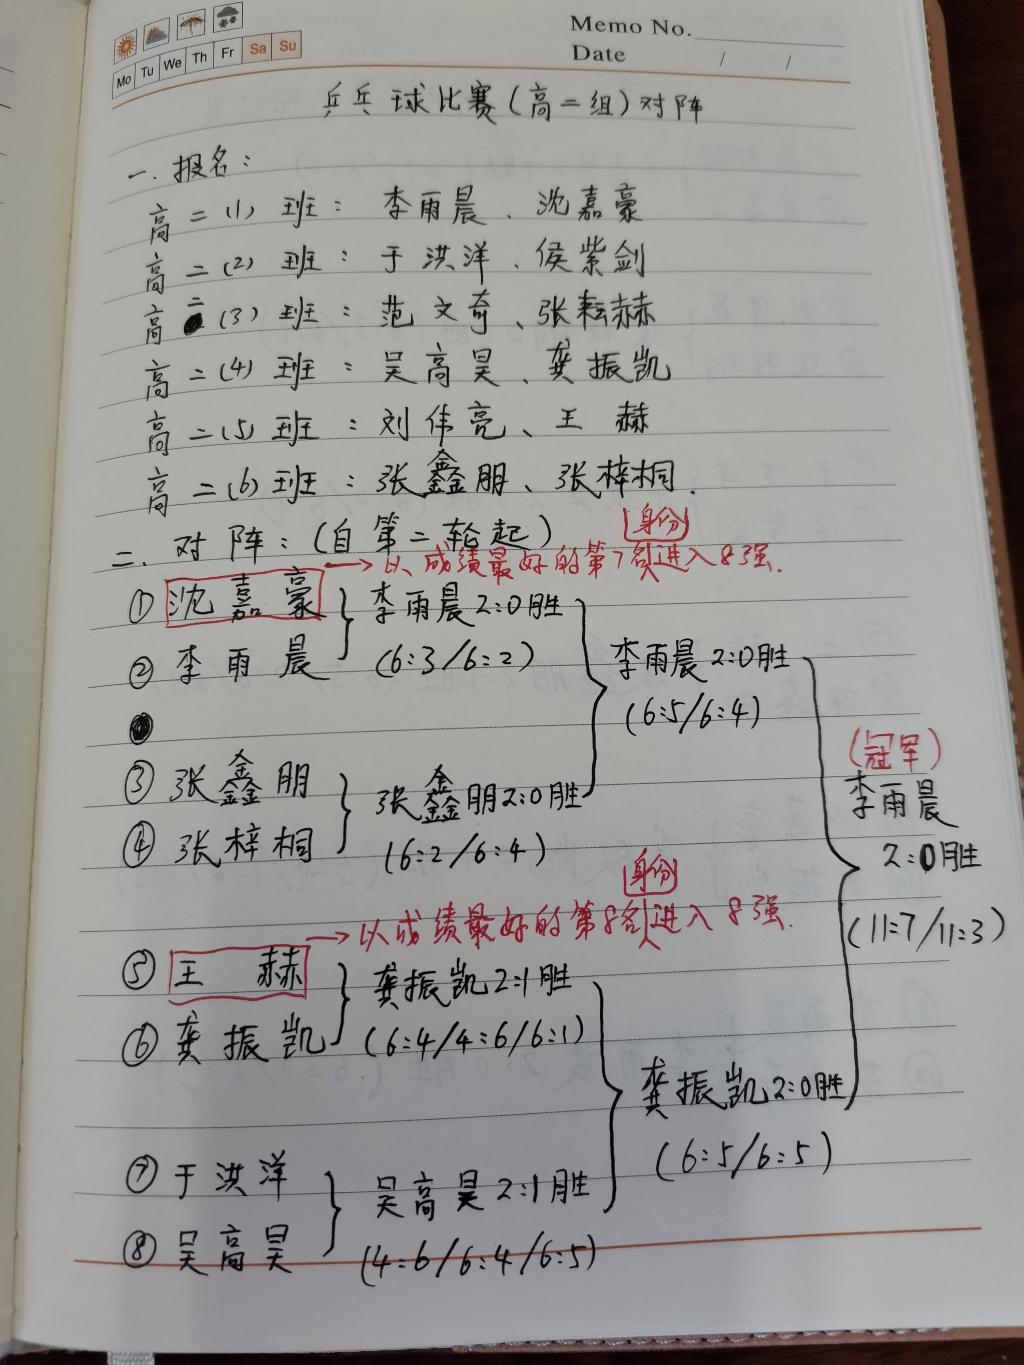 Memo No.
Mo Tu We Th Fr Sa Su
Date / /
乒乓球比赛(高二组)对阵
一.报名:
高二(1)班:李雨晨、沈嘉豪
高二(2)班:于洪洋、侯紫剑
高二(3)班:范文奇、张耘赫
高二(4)班:吴高昊、龚振凯
高二(5)班:刘伟亮、王赫
高二(6)班:张鑫朋、张梓桐.
二.对阵:(自第二轮起)
身份
→以成绩最好的第7名进入8强.
①沈嘉豪
李雨晨2:0胜
②李雨晨
(6:3/6:2)
李雨晨2:0胜
(6:5/6:4)
③张鑫朋
张鑫朋2:0胜
④张梓桐
(6:2/6:4)
(冠军)
李雨晨
2:0胜
(11:7/11:3)
身份
→以成绩最好的第8名进入8强.
⑤王赫
龚振凯2:1胜
⑥龚振凯
(6:4/4:6/6:1)
龚振凯2:0胜
(6:5/6:5)
⑦于洪洋
吴高昊2:1胜
⑧吴高昊
(4:6/6:4/6:5)